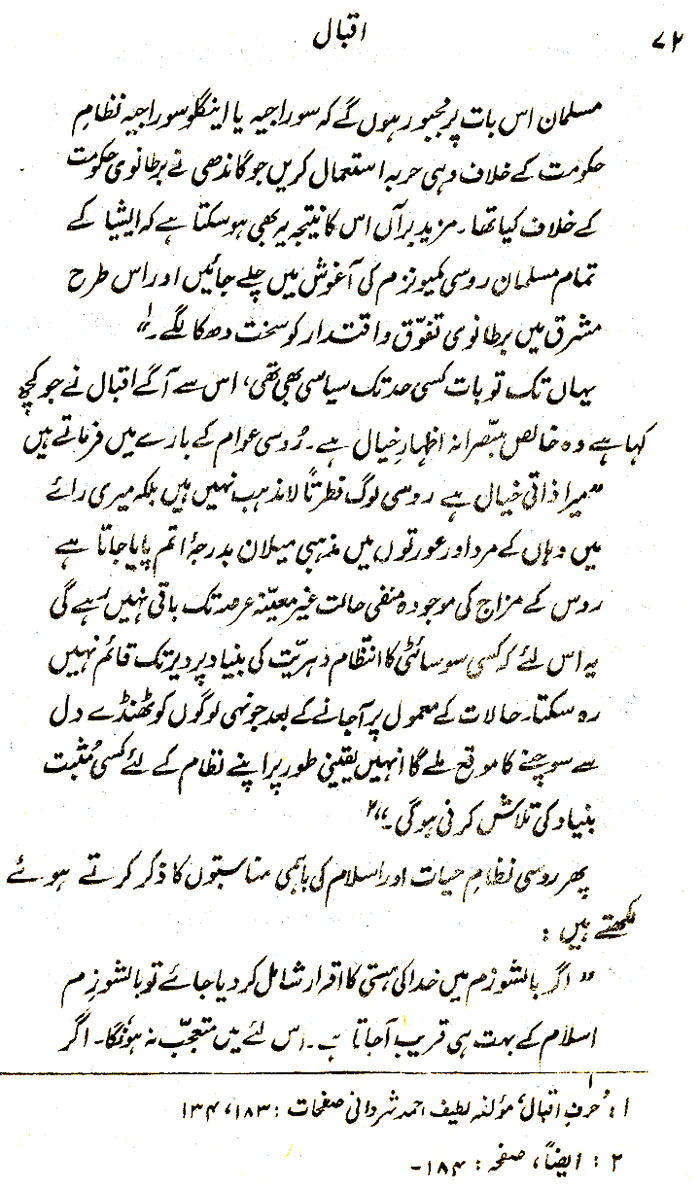 ۷۲ اقبال
مسلمان اس بات پر مجبور ہوں گے کہ سوراجیہ یا اینگلو سوراجیہ نظامِ
حکومت کے خلاف وہی حربہ استعمال کریں جو گاندھی نے برطانوی حکومت
کے خلاف کیا تھا۔ مزید برآں اس کا نتیجہ یہ بھی ہو سکتا ہے کہ ایشیا کے
تمام مسلمان روسی کمیونزم کی آغوش میں چلے جائیں اور اس طرح
مشرق میں برطانوی تفوّق و اقتدار کو سخت دھکا لگے۔"۱
یہاں تک تو بات کسی حد تک سیاسی بھی تھی، اس سے آگے اقبال نے جو کچھ
کہا ہے وہ خالص مبصّرانہ اظہارِ خیال ہے۔ رُوسی عوام کے بارے میں فرماتے ہیں
"میرا ذاتی خیال ہے روسی لوگ فطرتاً لا مذہب نہیں ہیں بلکہ میری رائے
میں وہاں کے مرد اور عورتوں میں مذہبی میلان بدرجۂ اتم پایا جاتا ہے
روس کے مزاج کی موجودہ منفی حالت غیر معیّنہ عرصہ تک باقی نہیں رہے گی
یہ اس لئے کہ کسی سوسائٹی کا انتظام دہریّت کی بنیاد پر دیر تک قائم نہیں
رہ سکتا۔ حالات کے معمول پر آجانے کے بعد جونہی لوگوں کو ٹھنڈے دل
سے سوچنے کا موقع ملے گا انہیں یقینی طور پر اپنے نظام کے لئے کسی مُثبت
بنیاد کی تلاش کرنی ہوگی۔"۲
پھر روسی نظامِ حیات اور اسلام کی باہمی مناسبتوں کا ذکر کرتے ہوئے
لکھتے ہیں :
" اگر بالشوزم میں خدا کی ہستی کا اقرار شامل کر دیا جائے تو بالشوزم
اسلام کے بہت ہی قریب آجاتا ہے۔ اس لئے میں متعجّب نہ ہونگا۔ اگر
۱ : 'حرفِ اقبال' مؤلفہ لطیف احمد شروانی صفحات : ۱۸۳، ۱۳۴
۲ : ایضاً، صفحہ : ۱۸۴-